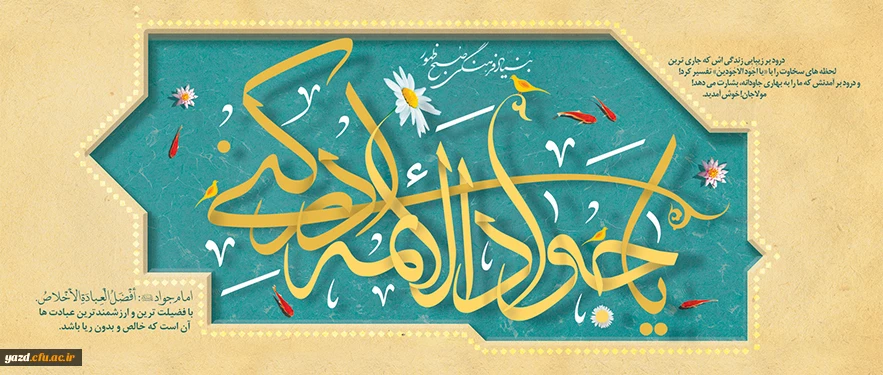 درود بر زیبایی زندگی اش که جاری ترین
لحظه های سخاوت را با «یا اجود الاجودین» تفسیر کرد!
و درود بر آمدنش که ما را به بهاری جاودانه، بشارت می دهد!
مولاجان! خوش آمدید.
بنیاد فرهنگی صبح ظهور
یا جواد الائمه ادرکنی
امام جواد : أَفْضَلُ الْعِبادَةِ الْأَخْلاصُ.
با فضیلت ترین و ارزشمندترین عبادت ها
آن است که خالص و بدون ریا باشد.
yazd.cfu.ac.ir